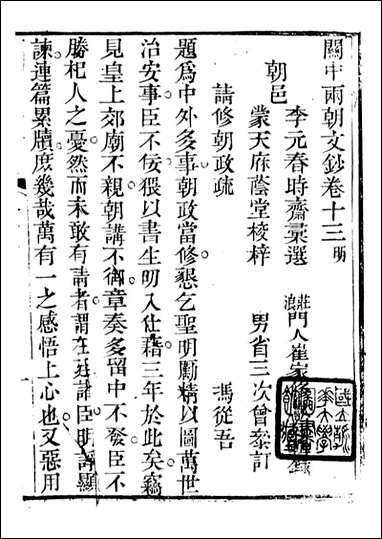 關中兩朝文鈔卷十三 明
朝邑
李元春時齋彚選
蒙天庥蔭堂校梓
莊浪 門人崔家 錄
男省三次曾叅訂
請修朝政疏
馮從吾
題爲中外多事朝政當修懇乞聖明勵精以圖萬世
治安事臣不佞猥以書生叨入仕藉三年於此矣竊
見皇上郊廟不親朝講不御章奏多留中不發臣不
勝杞人之憂然而未敢有請者謂在廷諸臣明諍顯
諫連篇累牘庶幾哉萬有一之感悟上心也又惡用